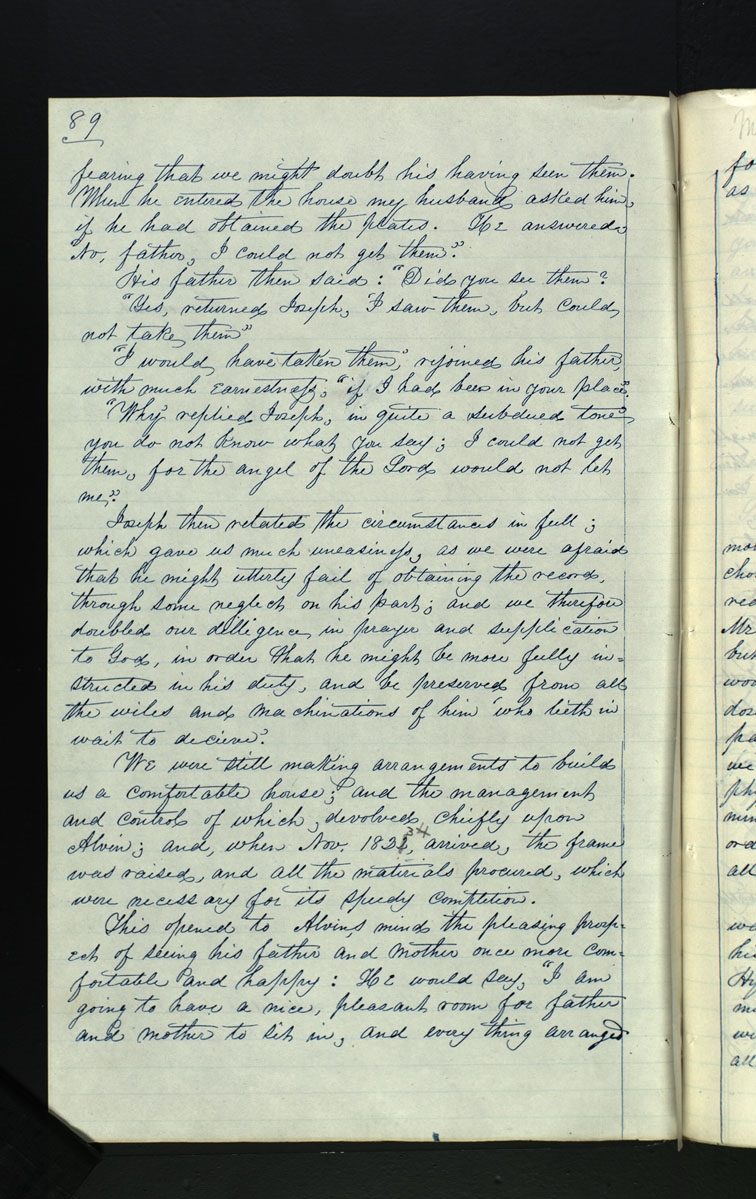 89
fearing that we might doubt his having seen them.
When he entered the house my husband asked him,
if he had obtained the plates. He answered,
No, father, I could not get them."
His father then said: "Did you see them?
"Yes, returned Joseph, "I saw them, but could
not take them"
"I would have taken them," rejoined his father,
with much earnestness, "if I had been in your place".
"Why" replied Joseph, in quite a subdued tone"
you do not know what you say; I could not get
them, for the angel of the Lord would not let
me,"
Joseph then related the circumstances in full;
which gave us much uneasiness, as we were afraid
that he might utterly fail of obtaining the record,
through some neglect on his part; and we therefore
doubled our dilligence, in prayer and supplication
to God, in order that he might be more fully in=
structed in his duty, and be preserved from all
the wiles and machinations of him 'who lieth in
wait to decieve'.
We were still making arrangements to build
us a comfortable house; and the management
and control of which, devolved chiefly upon
Alvin; and, when Nov. 182 3 x, arrived, the frame
was raised, and all the materials procured, which
were necessary for its speedy completion.
This opened to Alvins, mind the pleasing prosp=
ect of seeing his father and mother once more com=
fortable and happy: He would say, "I am
going to have a nice, pleasant room for father
and mother to sit in, and every thing arranged
fo
as
mo
cho
Mr
but
woo
we
min
all
we
his
Hy
we
all